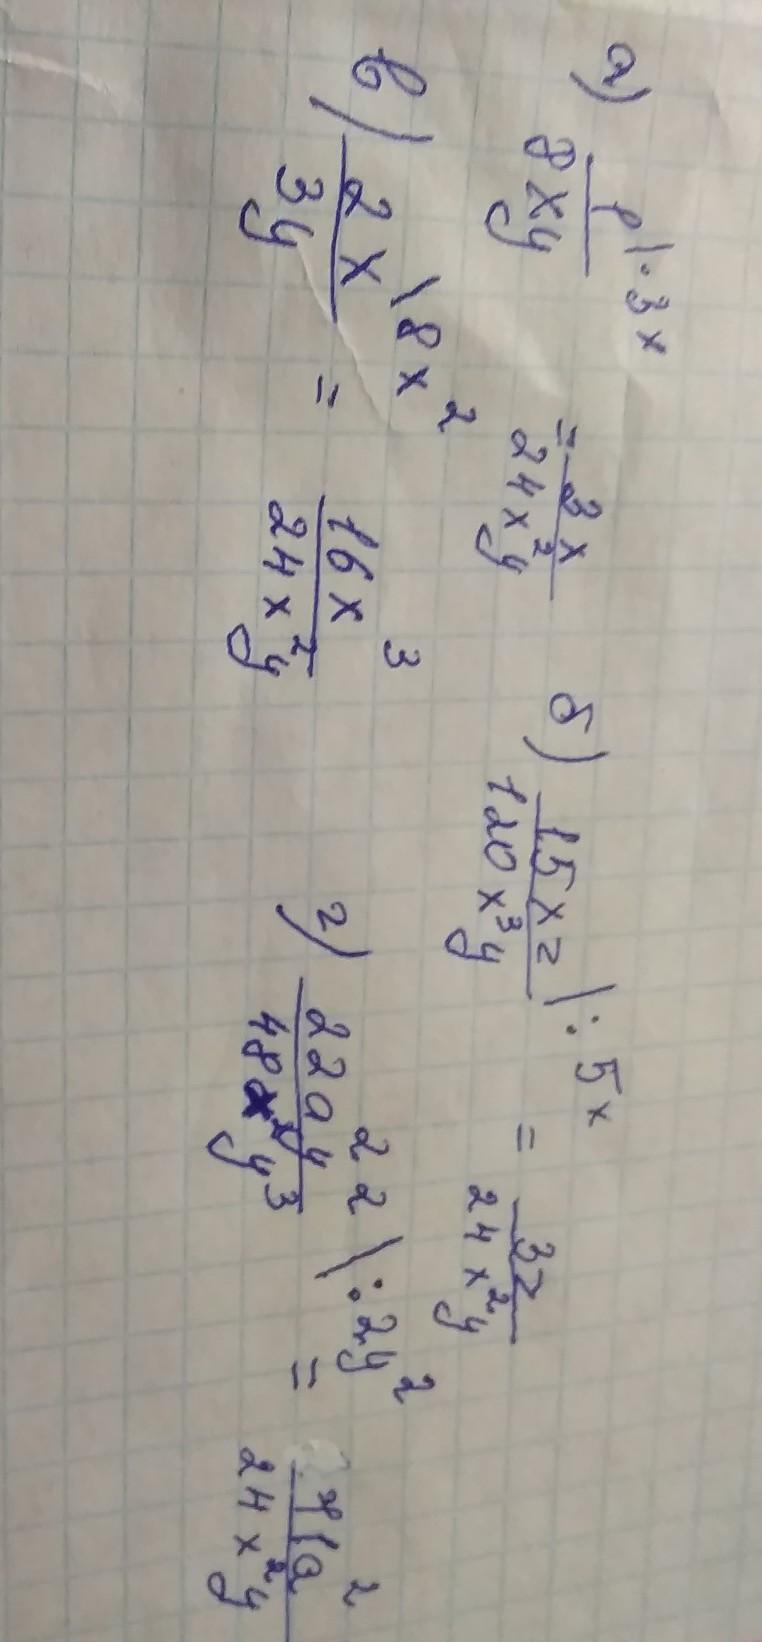 а) 1/8xy |·3x = 3x/24x²y
б) 15xz/120x³y |:5x = 3z/24x²y
в) 2x/3y \8x² = 16x³/24x²y
г) 22a²y²/48x²y³ |:2y² = 11a²/24x²y